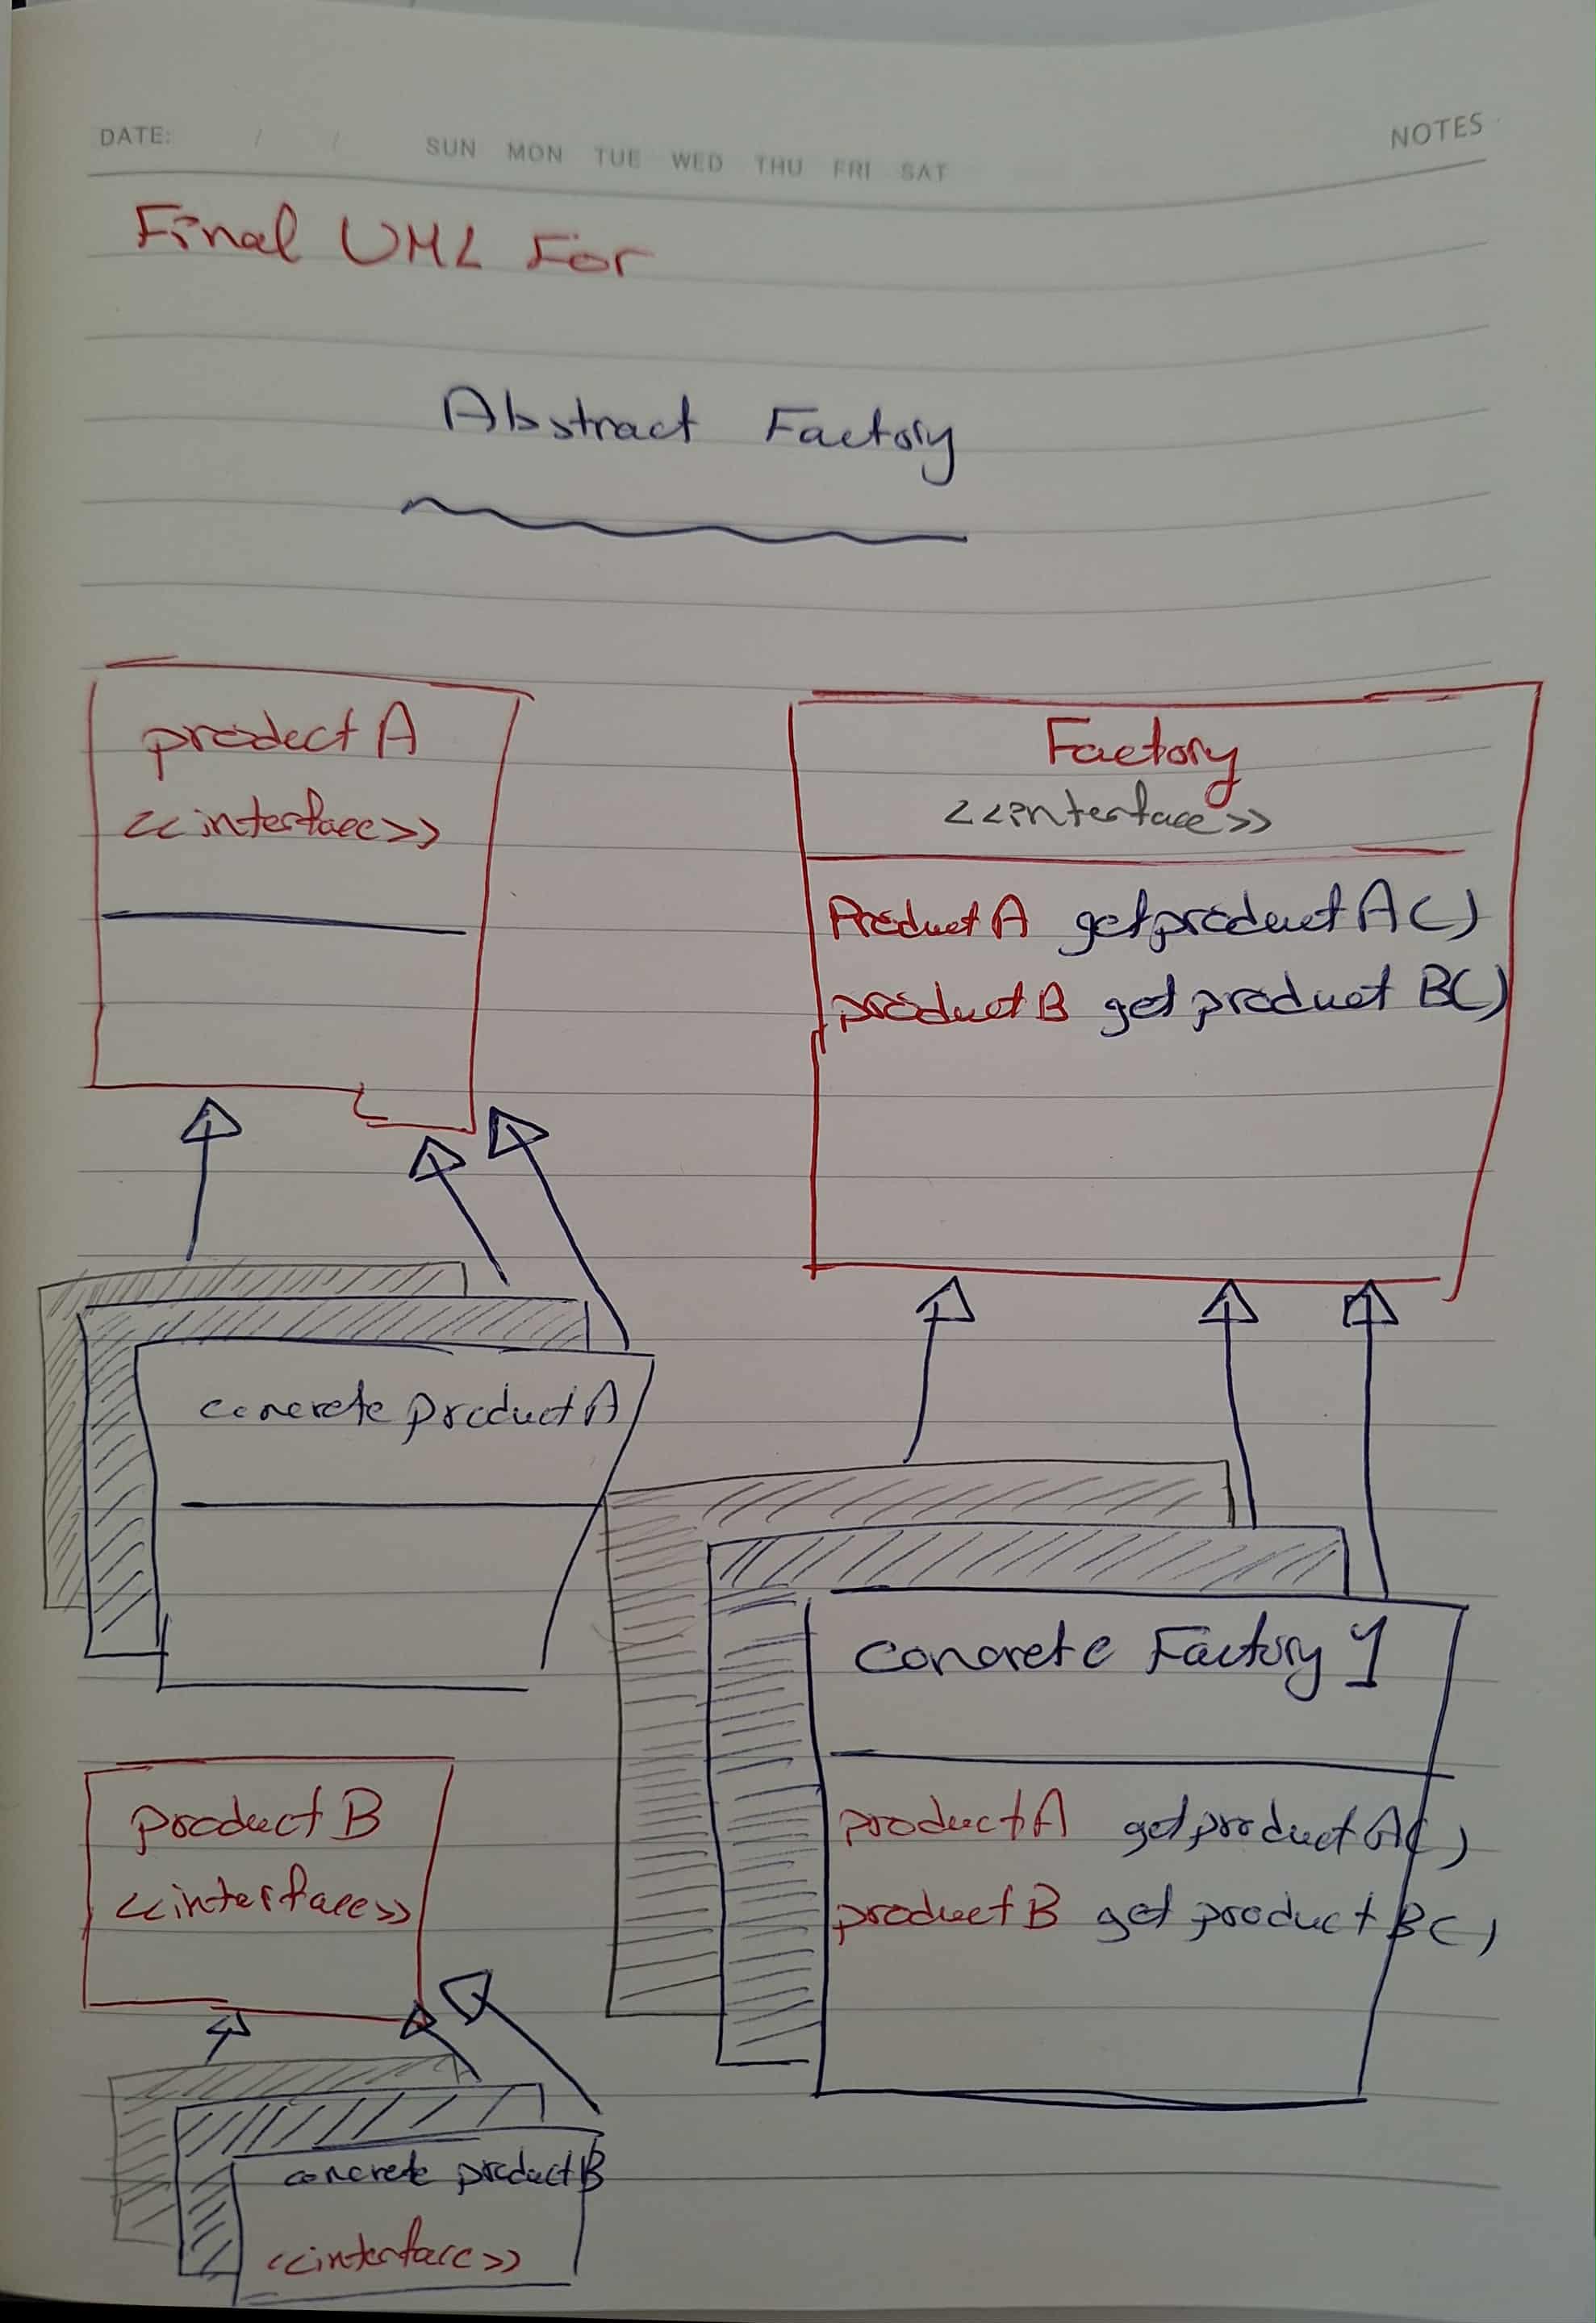 DATE: / / SUN MON TUE WED THU FRI SAT NOTES
Final UML For
Abstract Factory
product A
<<interface>>
Factory
<<interface>>
Product A getproduct A()
product B get product B()
concrete product A
concrete Factory 1
product A getproduct A()
product B get product B()
product B
<<interface>>
concrete product B
<<interface>>